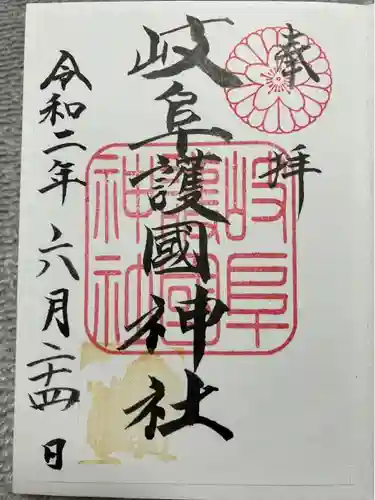 奉拝
岐阜護國神社
岐阜護國神社
令和二年六月二十四日